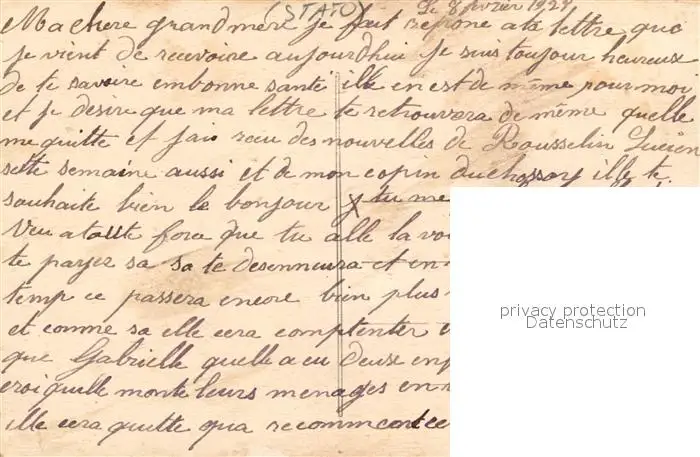 (STATO) Le 8 fevrier 1929
Ma chere grand mère je fait reprone a la lettre que
je vient de recevoire aujourdhui je suis toujour heureux
de te savoire embonne santé ille en est de même pour moi
et je désire que ma lettre te retrouvera de même quelle
me quitte et jai recu des nouvelles de Rousselin Lucien
sette semaine aussi et de mon copin duchossoy ille te
souhaite bien le bonjour y tu me
veu atoute force que tu alle la voi
te payer sa sa te desennuira et en
temp ce passera encore bien plus
et comme sa elle cera comptenter
que Gabrielle quelle a eu deux enf
croi quelle monte leurs menages en
ille cera quitte qua recommence
privacy protection
Datenschutz